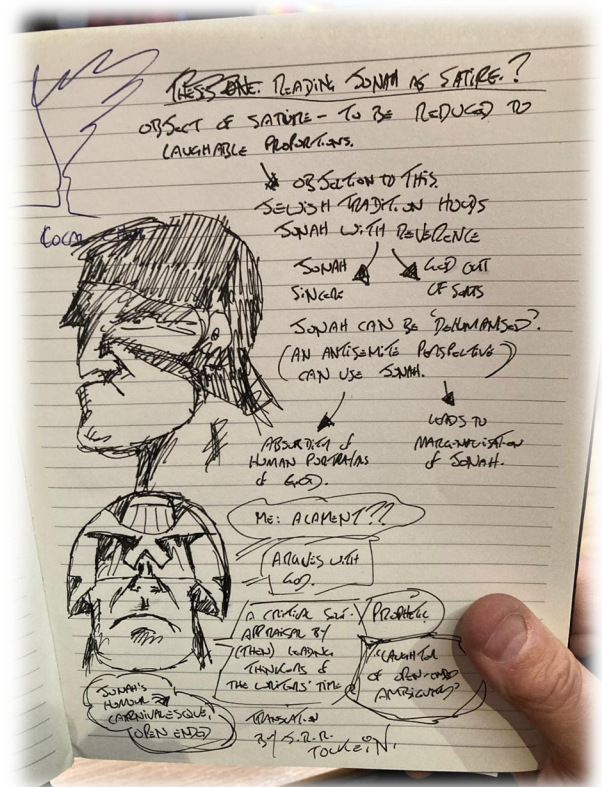 THESIS ONE: READING JONAH AS SATIRE.?
OBJECT OF SATIRE – TO BE REDUCED TO
LAUGHABLE PROPORTIONS.
OBJECTION TO THIS.
JEWISH TRADITION HOLDS
JONAH WITH REVERENCE
JONAH
SINCERE
GOD OUT
OF SORTS
JONAH CAN BE 'DEHUMANISED'.
(AN ANTISEMITE PERSPECTIVE)
CAN USE JONAH.
ABSURDITY of
HUMAN PORTRAYALS
of GOD.
LEADS TO
MARGINALISATION
of JONAH.
ME: A LAMENT??
ARGUES WITH
GOD.
A CRITICAL SELF-
APPRAISAL BY
(THEN) LEADING
THINKERS of
THE WRITERS' TIME
PROPHETIC
"LAUGHTER
OF OPEN-ENDED
AMBIGUITY"
JONAH'S
HUMOUR
CARNIVALESQUE,
OPEN ENDED
TRANSLATION
BY J.R.R.
TOLKEIN.